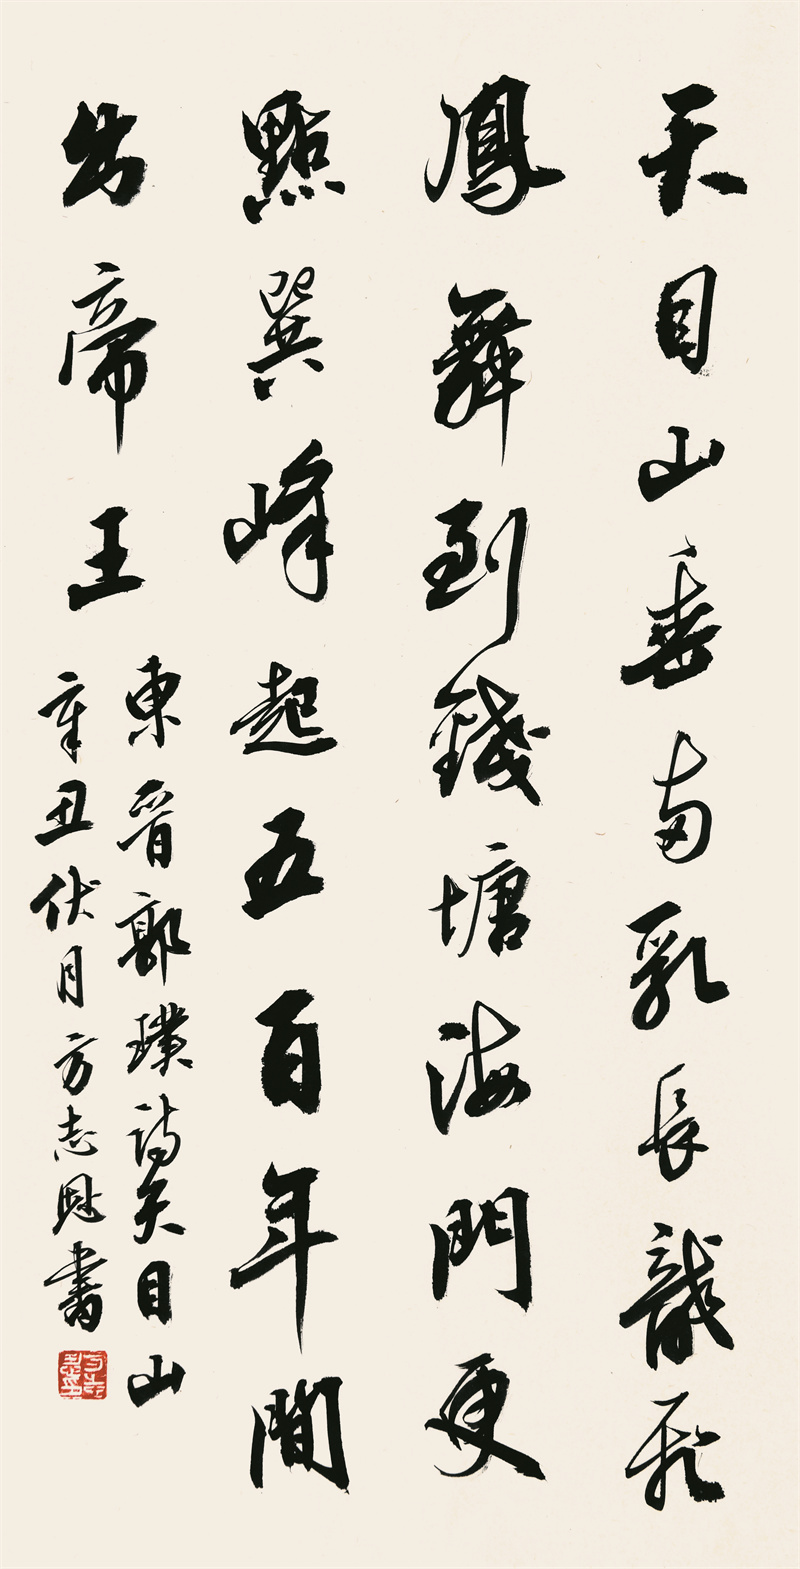 天目山垂兩乳長龍飛
鳳舞到錢塘海門更
點巽峰起五百年間
出帝王
東晉郭璞詩天目山
辛丑伏月方志恩書